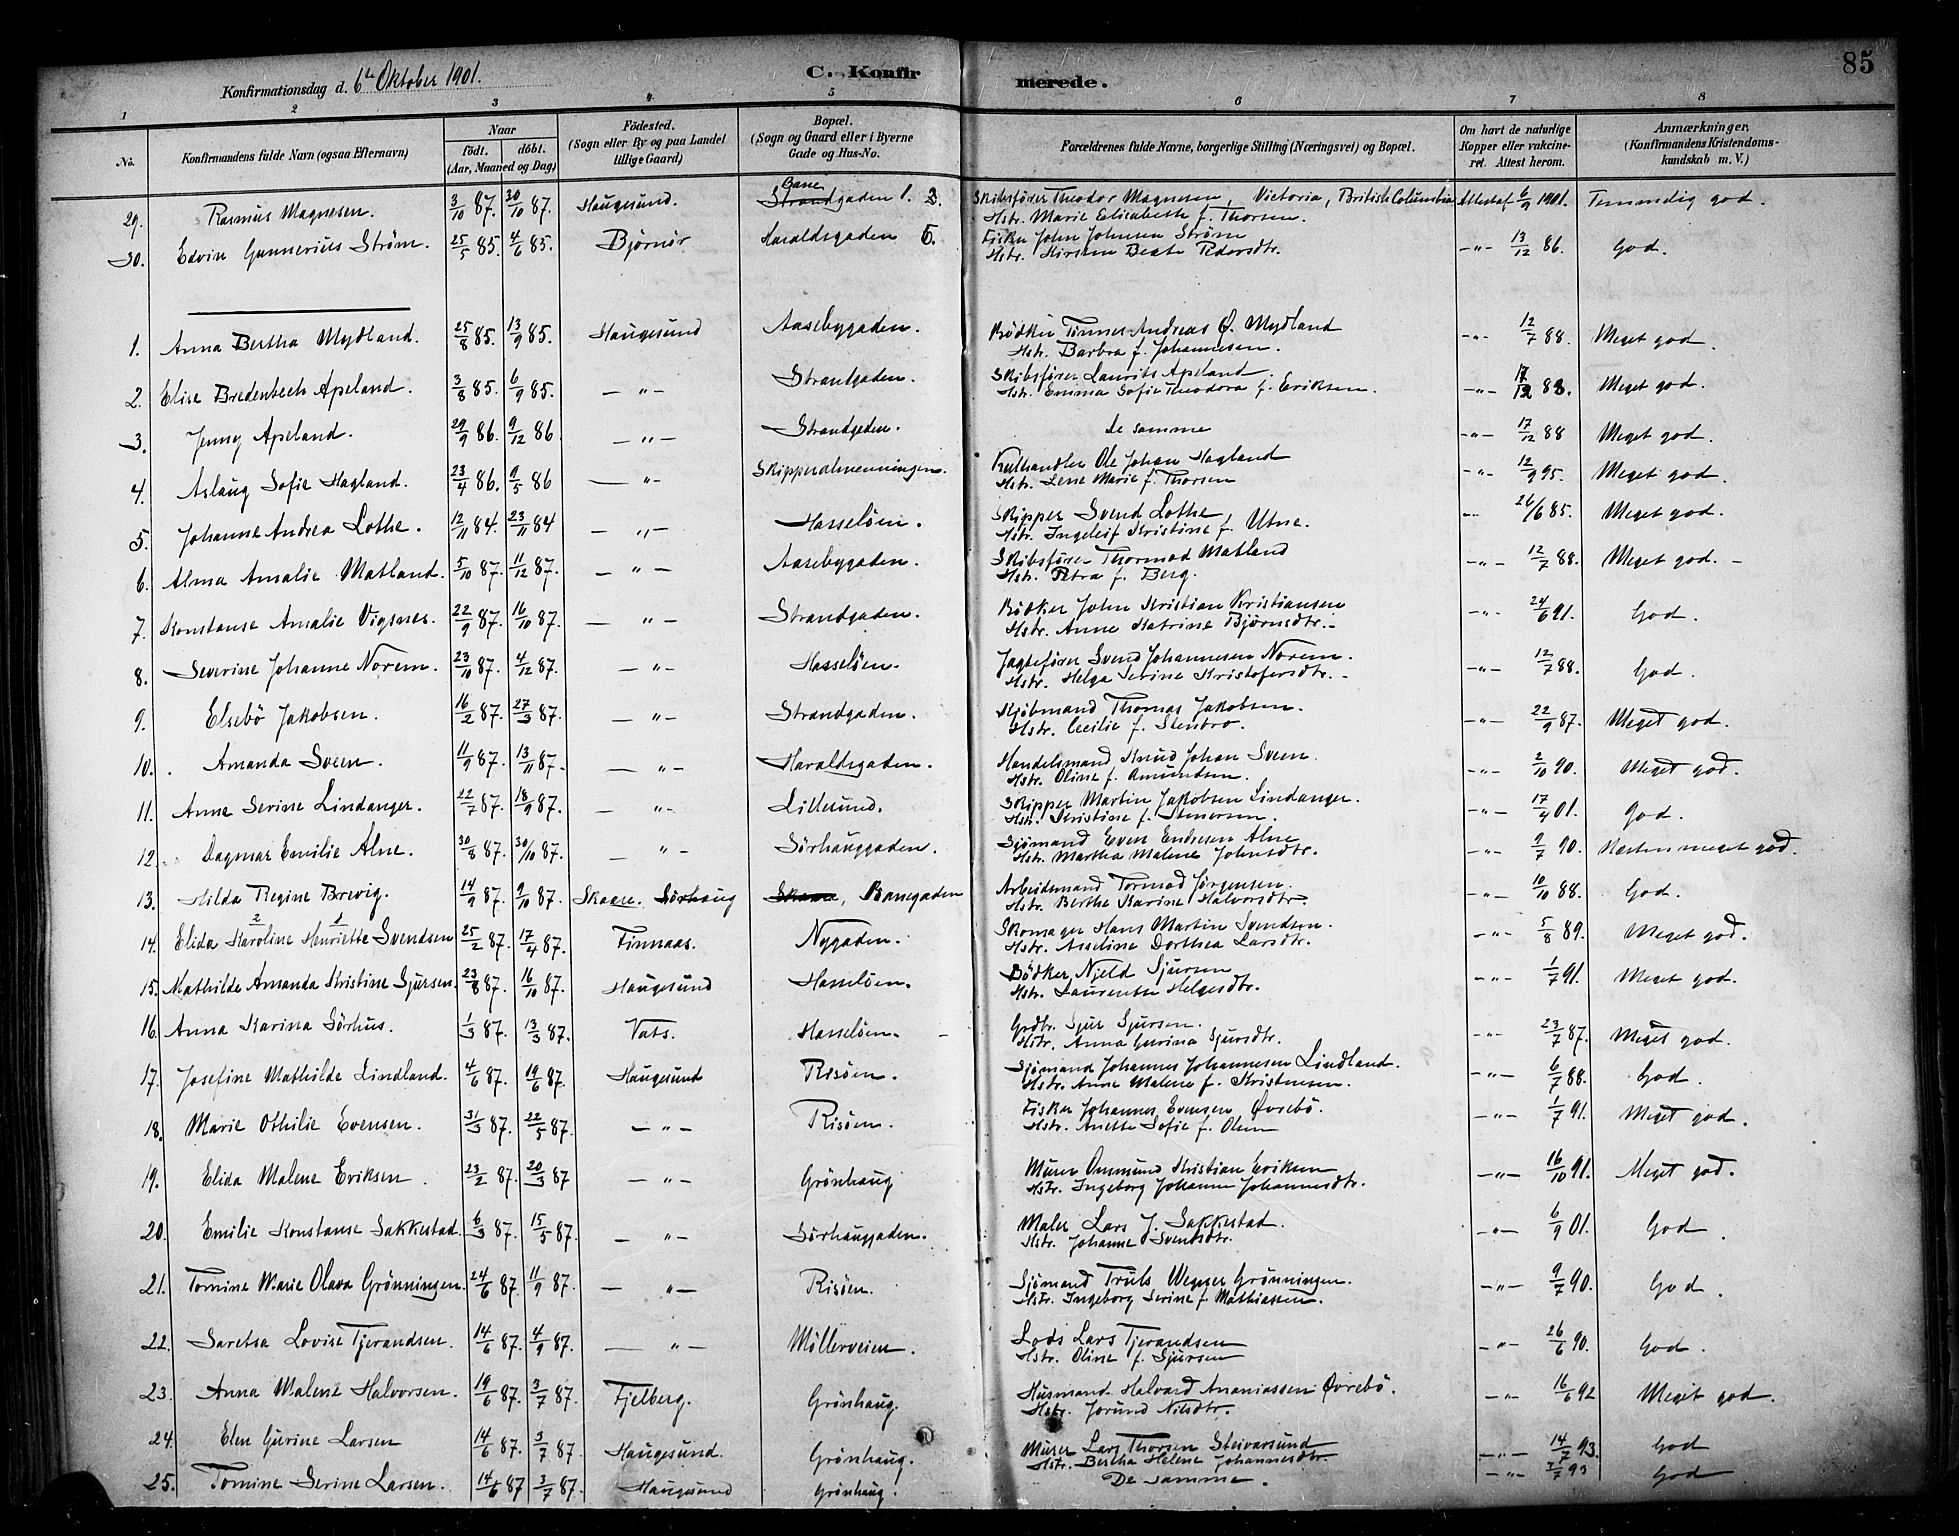 85
Konfirmationsdag d. 6te Oktober 1901.
C. Konfirmerede.
1 2 3 4 5 6 7 8
No. Konfirmandens fulde Navn (ogsaa Efternavn) Naar födt. döbt. (Aar, Maaned og Dag) Födested. (Sogn eller By og paa Landet tillige Gaard) Bopæl. (Sogn og Gaard eller i Byerne Gade og Hus-No. Forældrenes fulde Navne, borgerlige Stilling (Næringsvei) og Bopæl. Om havt de naturlige Kopper eller vaccineret. Attest herom. Anmærkninger, (Konfirmandens Kristendomskundskab m. V.)
29. Rasmus Magnesen. 3/10 87. 30/10 87. Haugesund. Banegaden 1. 2. Skibsfører Theodor Magnesen, Victoria, British Columbia Attest af 6/9 1901. Temmelig god.
Hstr. Marie Elisabeth f. Thorsen.
30. Edvin Gunnerius Strøm. 25/5 85. 4/6 85. Bjørnør Haraldsgaden 5. Fisker John Johnsen Strøm -"- 13/12 86. God.
Hstr. Kirsten Beate Pedersdtr.
1. Anna Bertha Mydland. 25/8 85. 13/9 85. Haugesund Aasebygaden. Bødker Tønnes Andreas Ø. Mydland -"- 12/7 88. Meget god.
Hstr. Barbra f. Johannesen.
2. Elise Bredenbech Apeland. 3/8 85. 6/9 85. -"- Strandgaden. Skibsfører Laurits Apeland. -"- Meget god.
Hstr. Emma Sofie Theodora f. Eriksen.
3. Jenny Apeland. 29/9 86. 9/12 86 -"- Strandgaden. De samme -"- 17/12 88 Meget god.
4. Aslaug Sofie Hagland. 23/4 86. 9/5 86 -"- Skipperalmenningen. Kulhandler Ole Johan Hagland -"- 12/9 95. Meget god.
Hstr. Lene Marie f. Thorsen
5. Johanne Andrea Lothe. 12/11 84. 23/11 84 -"- Hasseløen. Skipper Svend Lothe -"- 26/6 85. Meget god.
Hstr. Ingeleif Kristine f. Utne.
6. Alma Amalie Matland. 5/10 87. 11/12 87. -"- Aasebygaden. Skibsfører Thormod Matland -"- 12/7 88. Meget god. -
Hstr. Petra f. Berg.
7. Konstanse Amalie Vigsnes. 22/9 87. 16/10 87. -"- Strandgaden. Bødker John Kristian Kristiansen -"- 24/6 91. God.
Hstr. Anne Katrine Bjørnsdtr. -
8. Severine Johanne Norem. 23/10 87. 4/12 87. -"- Hasseløen. Jagtefører Svend Johannesen Norem. -"- 12/7 88. God.
Hstr. Helga Serine Kristofersdtr. -
9. Elsebö Jakobsen. 16/2 87. 27/3 87. -"- Strandgaden. Kjøbmand Thomas Jakobsen. -"- 22/9 87. Meget god.
Hstr. Cecilie f. Stenbro.
10. Amanda Sveen. 11/9 87. 13/11 87. -"- Haraldsgaden. Handelsmand Knud Johan Sveen. -"- 2/10 90. Meget god.
Hstr. Oline f. Amundsen.
11. Anne Serine Lindanger. 22/7 87. 18/9 87. -"- Lillesund. Skipper Martin Jakobsen Lindanger. -"- 17/4 01. God.
Hstr. Kristine f. Stenersen.
12. Dagmar Emilie Alne. 30/8 87. 30/10 87. -"- Sörhauggaden. Sjømand Even Endresen Alne -"- 9/7 90. Næsten meget god.
Hstr. Martha Malene Johnsdtr.
13. Hilda Regine Brevig. 14/9 87. 9/10 87. Skaare. Sörhaug Skaare, Banegaden Arbeidsmand Tormod Jørgensen. -"- 10/10 88. God.
Hstr. Berthe Karine Halvorsdtr
14. Elida Karoline Henriette Svendsen 25/2 87. 17/4 87. Finnaas. Nygaden. Skomager Hans Martin Svendsen. -"- 5/8 89. Meget god.
Hstr. Asseline Dorthea Larsdtr.
15. Mathilde Amanda Kristine Sjursen. 23/8 87. 16/10 87. Haugesund Hasseløen. Bødker Njeld Sjursen -"- 1/7 91. Meget god.
Hstr. Laurentse Helgesdtr.
16. Anna Karina Sörhus. 1/3 87. 13/3 87. Vats. Hasseløen. - Grdbr. Sjur Sjursen. -"- 23/7 87. Meget god.
Hstr. Anna Gurina Sjursdtr.
17. Josefine Mathilde Lindland. 4/6 87. 19/6 87. Haugesund Risøen. Sjømand Johannes Johannesen Lindland. -"- 6/7 88. God.
Hstr. Anne Malene f. Kristensen.
18. Marie Othilie Evensen. 31/3 87. 22/5 87. -"- Risøen. Fisker Johannes Evensen Øvrebö. -"- 1/7 91. Meget god.
Hstr. Anette Sofie f. Olsen
19. Elida Malene Eriksen. 23/2 87. 20/3 87 -"- Grönhaug Murer Ommund Kristian Eriksen -"- 16/10 91. Meget god.
Hstr. Ingeborg Johanne Johannesdtr.
20. Emilie Konstanse Sakkestad. 6/3 87. 15/5 87. -"- Sörhauggaden. Maler Lars J. Sakkestad. -"- 6/9 01. God.
Hstr. Johanne Svendsdtr.
21. Tomine Marie Olava Grönningen. 24/6 87. 11/9 87. -"- Risøen. Sjömand Truls Wegner Grönningen. -"- 9/7 90. God.
Hstr. Ingeborg Serine f. Mathiassen.
22. Saretsa Lovise Tjerandsen. 14/6 87. 4/9 87. -"- Möllerveien. Lods Lars Tjerandsen -"- 26/6 90. God.
Hstr. Oline f. Sjursen
23. Anna Malene Halvorsen. 19/6 87. 3/7 87. Fjelberg. Grönhaug. Husmand Halvard Ananiassen Övrebö. -"- 16/6 92 Meget god.
Hstr. Jorund Nilsdtr.
24. Elen Gurine Larsen 14/6 87. 3/7 87. Haugesund. Grönhaug. Murer Lars Thorsen Steivarsund -"- 14/7 93. God
Hstr. Bertha Helene Johannesdtr.
25. Tomine Serine Larsen. 14/6 87 3/7 87. Haugesund Grönhaug. De samme. -"- 3/7 93 God